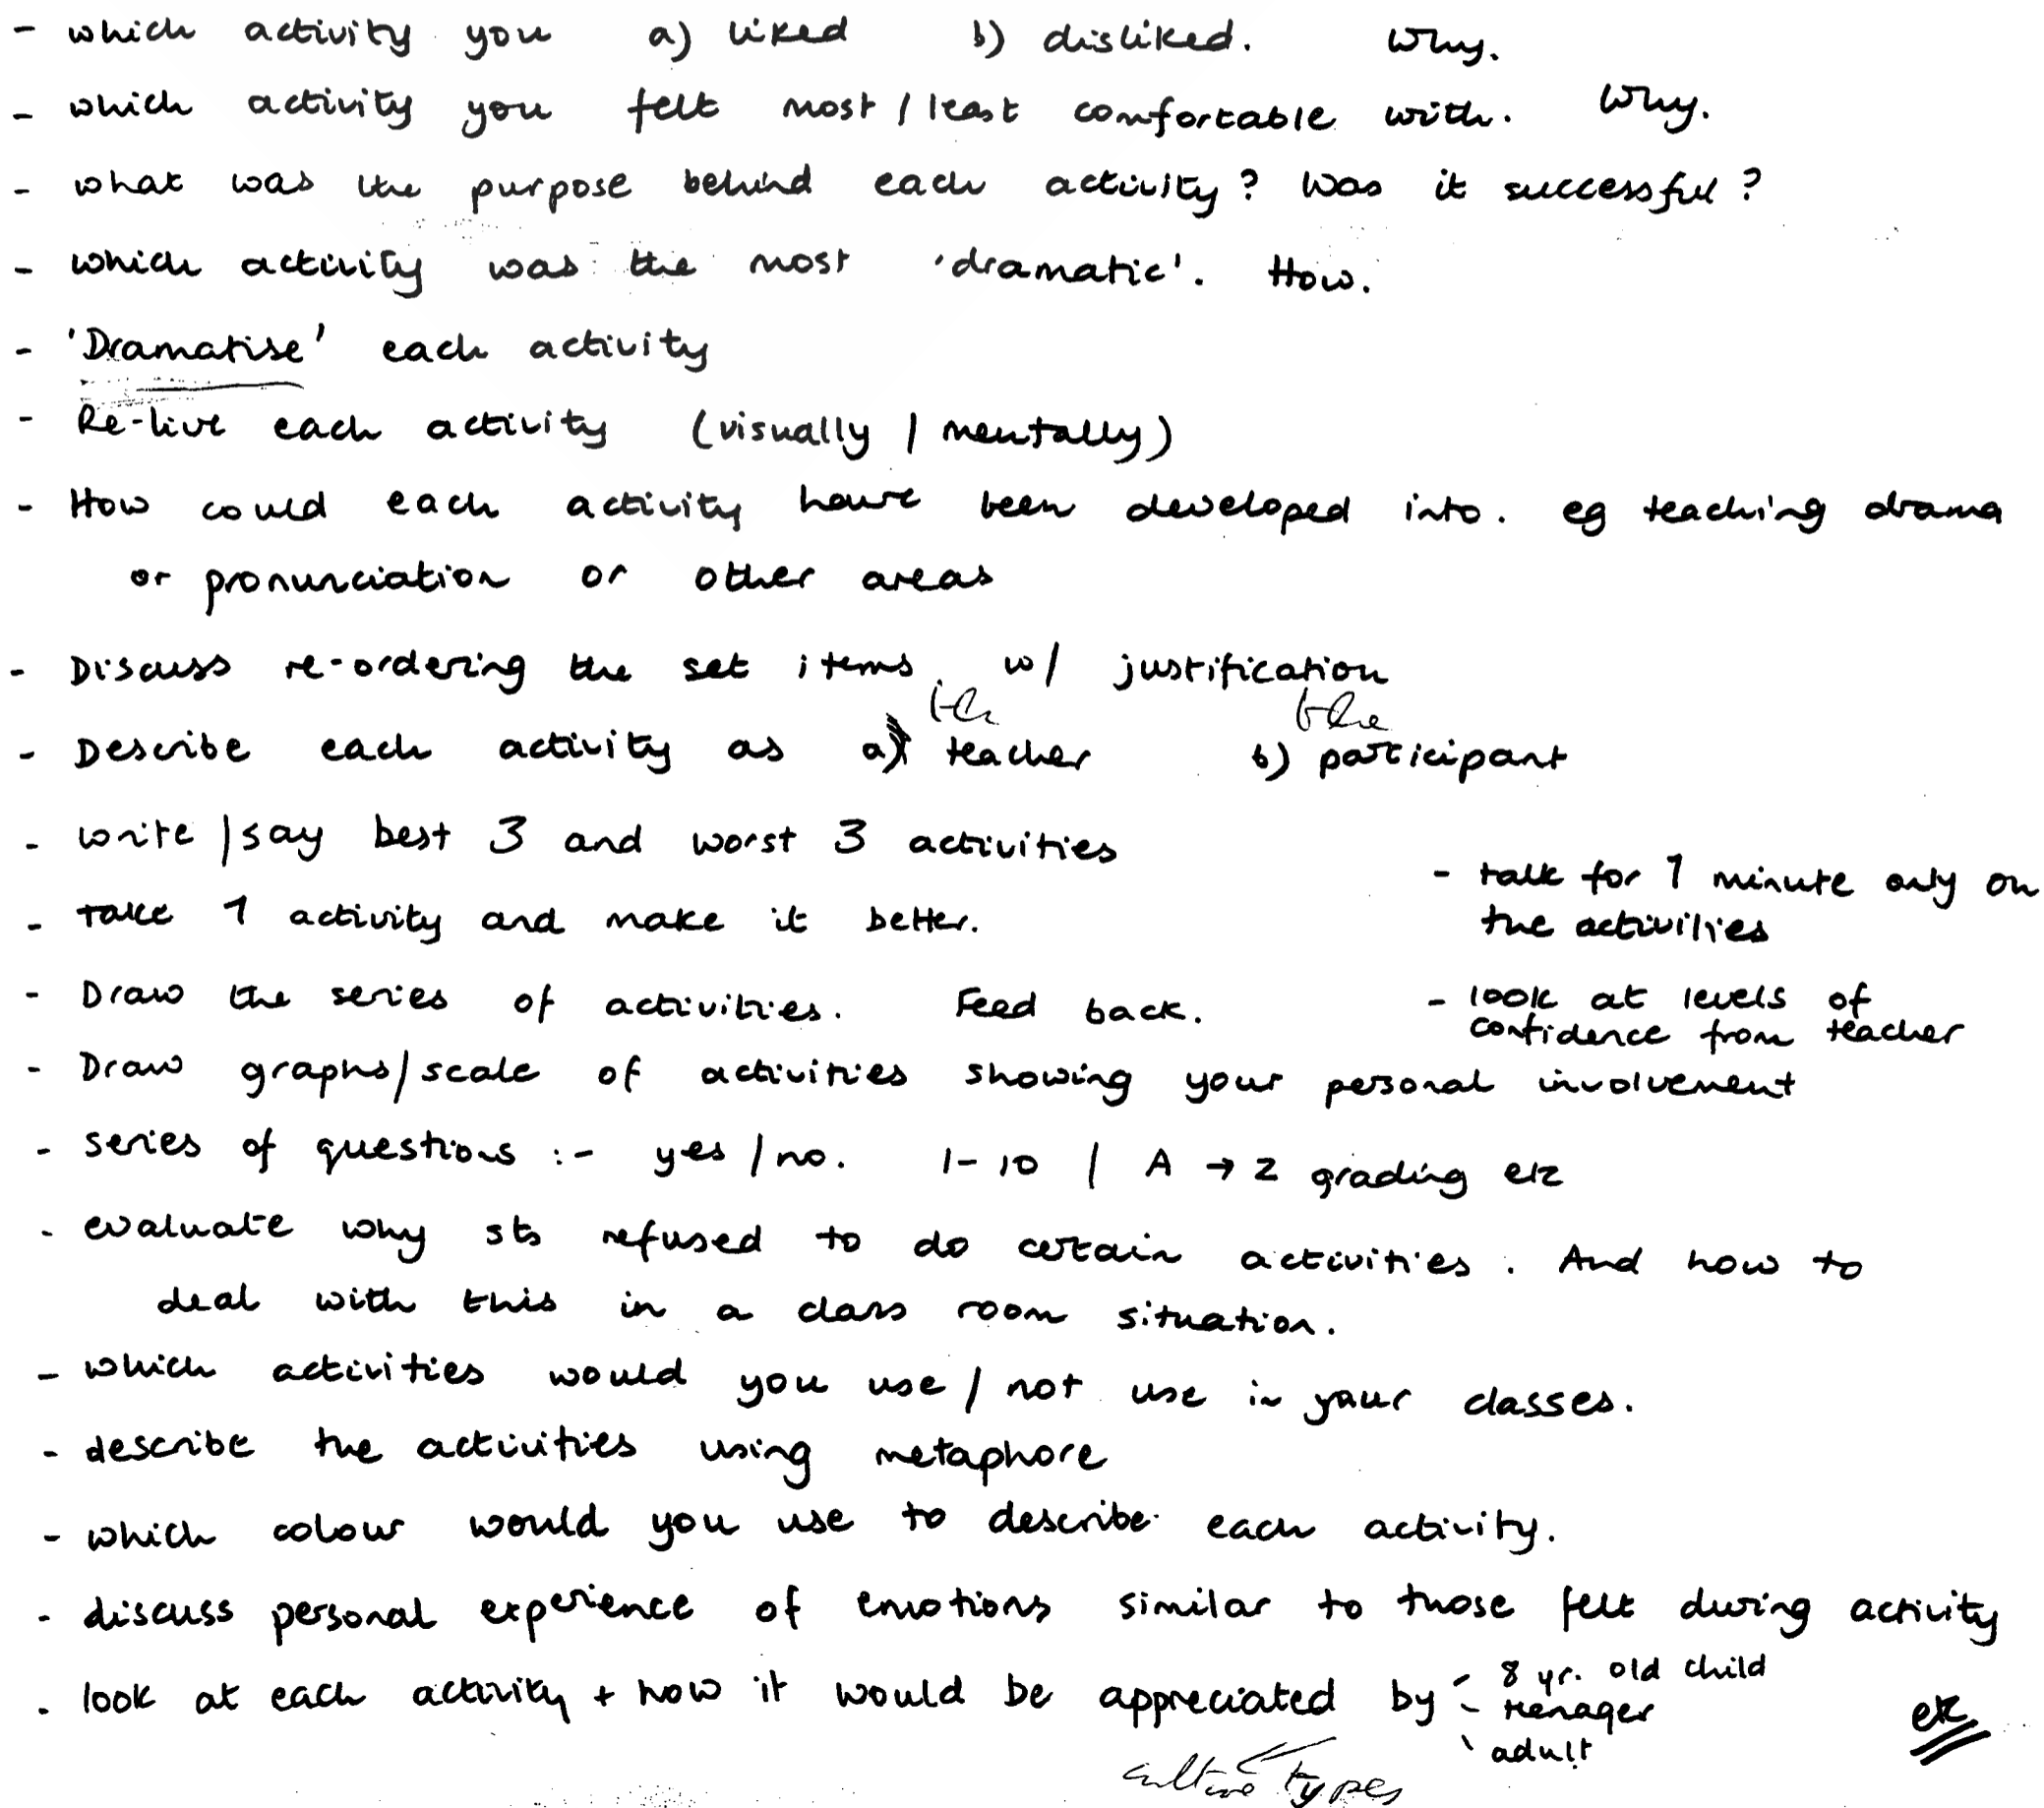 - which activity you a) liked b) disliked. Why.
- which activity you felt most / least comfortable with. Why.
- what was the purpose behind each activity? Was it successful?
- which activity was the most 'dramatic'. How.
- 'Dramatise' each activity
- Re-live each activity (visually / mentally)
- How could each activity have been developed into. eg teaching drama
or pronunciation or other areas
- Discuss re-ordering the set items w/ justification
the
- Describe each activity as a) teacher b) participant
- write / say best 3 and worst 3 activities
- take 1 activity and make it better.
- talk for 1 minute only on
the activities
- Draw the series of activities. Feed back.
- look at levels of
confidence from teacher
- Draw graphs/scale of activities showing your personal involvement
- series of questions :- yes / no. 1-10 / A → Z grading etc
- evaluate why sts refused to do certain activities. And how to
deal with this in a class room situation.
- which activities would you use / not use in your classes.
- describe the activities using metaphore
- which colour would you use to describe each activity.
- discuss personal experience of emotions similar to those felt during activity
- look at each activity + how it would be appreciated by - 8 yr. old child
- teenager
- adult
etc
culture types